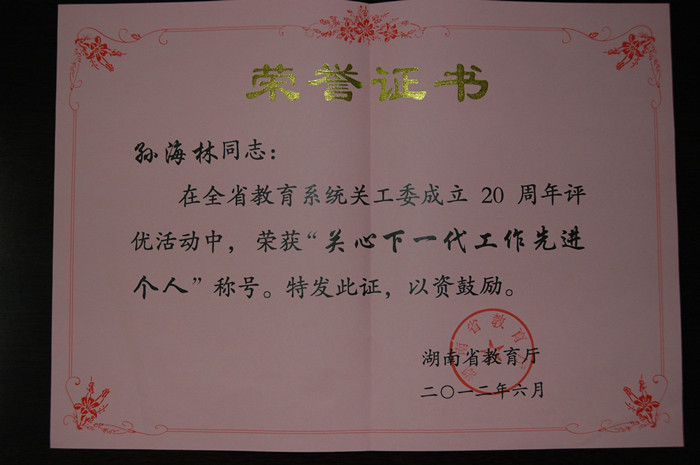 荣誉证书
孙海林同志：
在全省教育系统关工委成立 20 周年评
优活动中，荣获“关心下一代工作先进
个人”称号。特发此证，以资鼓励。
湖南省教育厅
二〇一二年六月